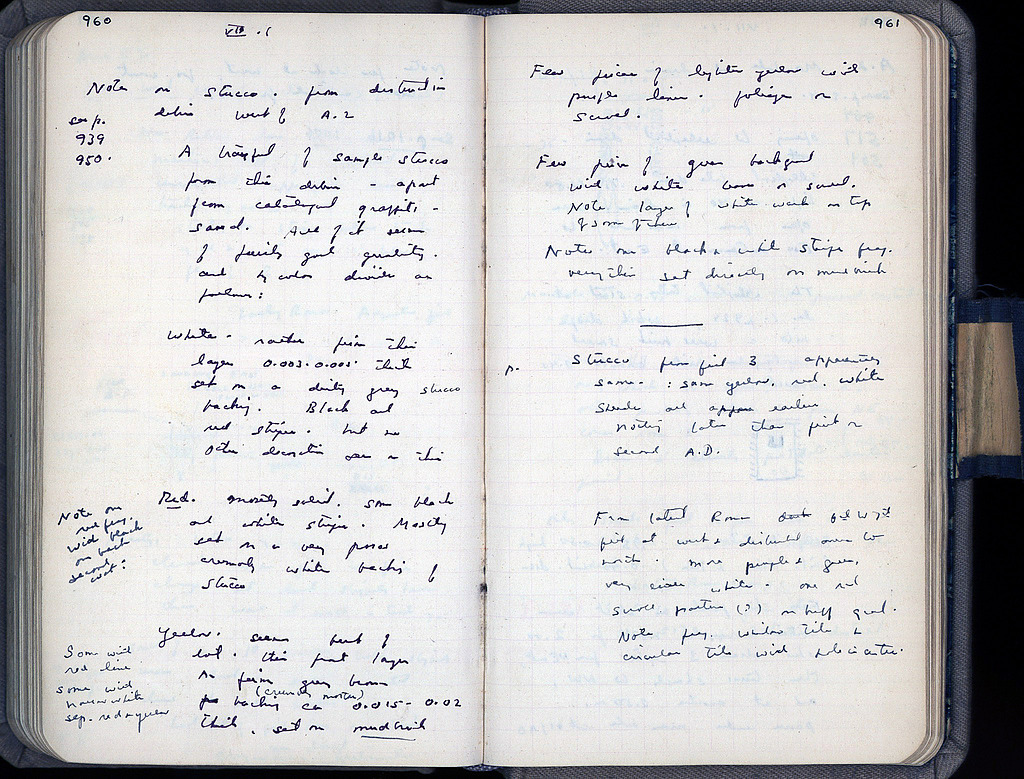 960
VIII . 1
Notes on stucco. from destruction
debris west of A.2
esp.
939
950.
A trayful of sample stucco
from this debris - apart
from catalogued graffiti -
saved. All of it seems
of fairly good quality.
and by color divides as
follows:
White - rather firm thin
layer 0.003-0.005 thick
set on a dirty grey stucco
backing. Black and
red stripes. but no
other decoration seen on this
Red. mostly solid. Some black
and white stripes. Mostly
set on a very porous
crumbly white backing of
stucco
Note on
red frag.
with black
on back
second
coat:
Yellow. seems best of
lot. thin paint layer
on firm grey brown
(crumbly mortar)
backing ca 0.015 - 0.02
thick, set on mudbrick
Some with
red line
some with
narrow white
sep. red + yellow
961
Few pieces of lighter yellow with
purple lines. foliage or
scroll.
Few pieces of green background
with white bands or scroll.
Note layer of white wash on top
of some of these
Note one black & white stripe frag.
very thin set directly on mudbrick
p.
Stucco from pit 3 apparently
same. : same yellow. red. white
shades and earlier
nothing later than first or
second A.D.
From latest Roman
pit at west & disturbed area to
north. more purple & green,
very white. one red
scroll pattern (?) on buff ground.
Note frag. window tile &
circular tile with